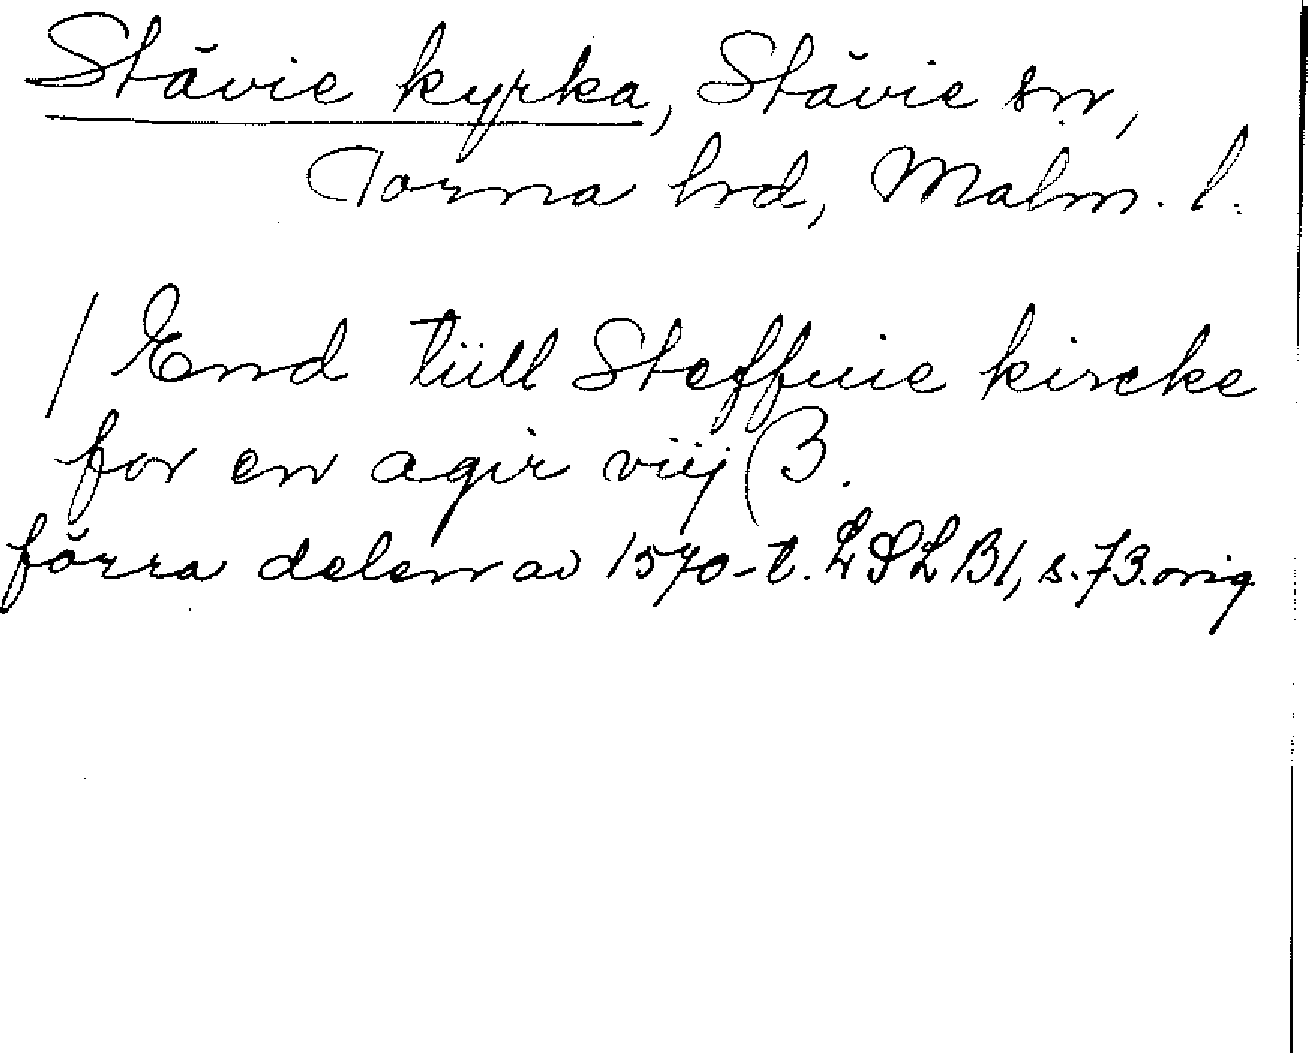 Stävie kyrka, Stävie sn,
Torna hrd, Malm. l.
/ End tiill Steffuie kircke
for en agir viij β.
förra delen av 1570-t. LSL B1, s. 73. orig